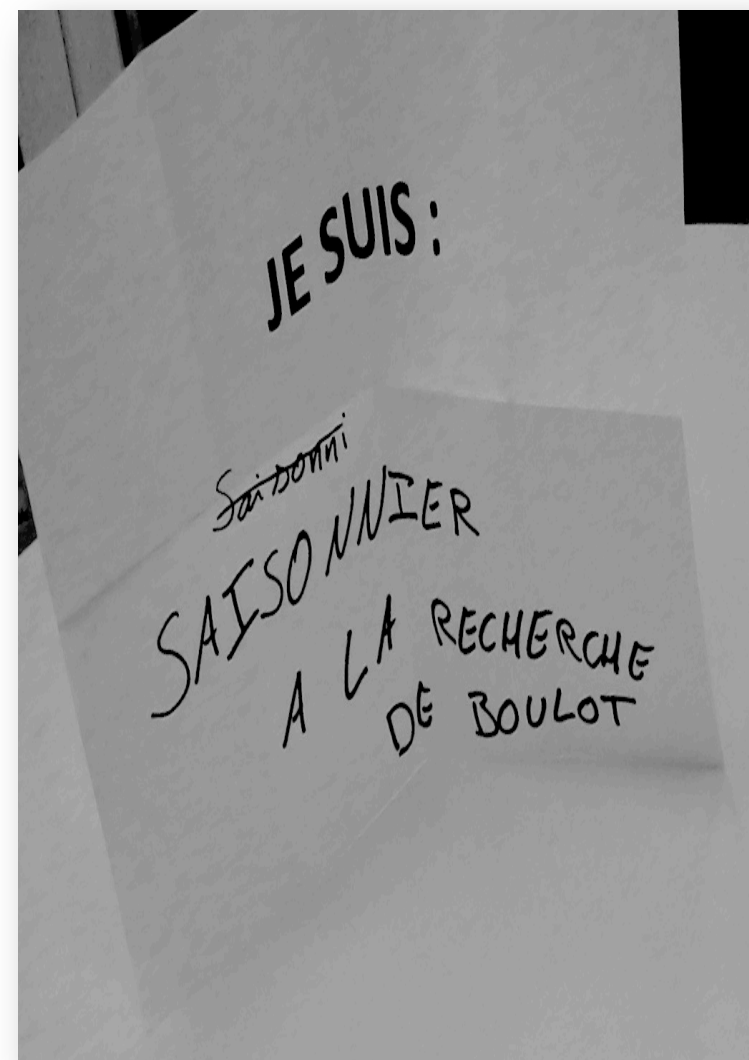 JE SUIS :
Saisonni
SAISONNIER
A LA RECHERCHE
DE BOULOT